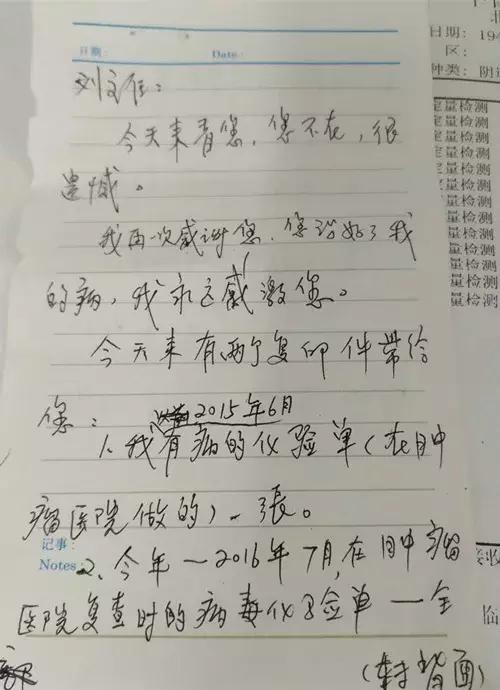 日期: 194
区:
种类: 阴
定量检测
定量检测
定量检测
定量检测
定量检测
定量检测
量检测
量检测
量检测
量检测
量检测
量检测
量检测
日期: Date:
刘主任:
今天来看您,您不在,很
遗憾。
我再一次感谢您,您治好了我
的病,我永远感激您。
今天来有两个复印件带给
您:
2015年6月
1、我有病的化验单(在肿
瘤医院做的)一張。
记事:
Notes:
2、今年一2016年7月,在肿瘤
医院复查时的病毒化验单一全
部
(转背面)
接收
临